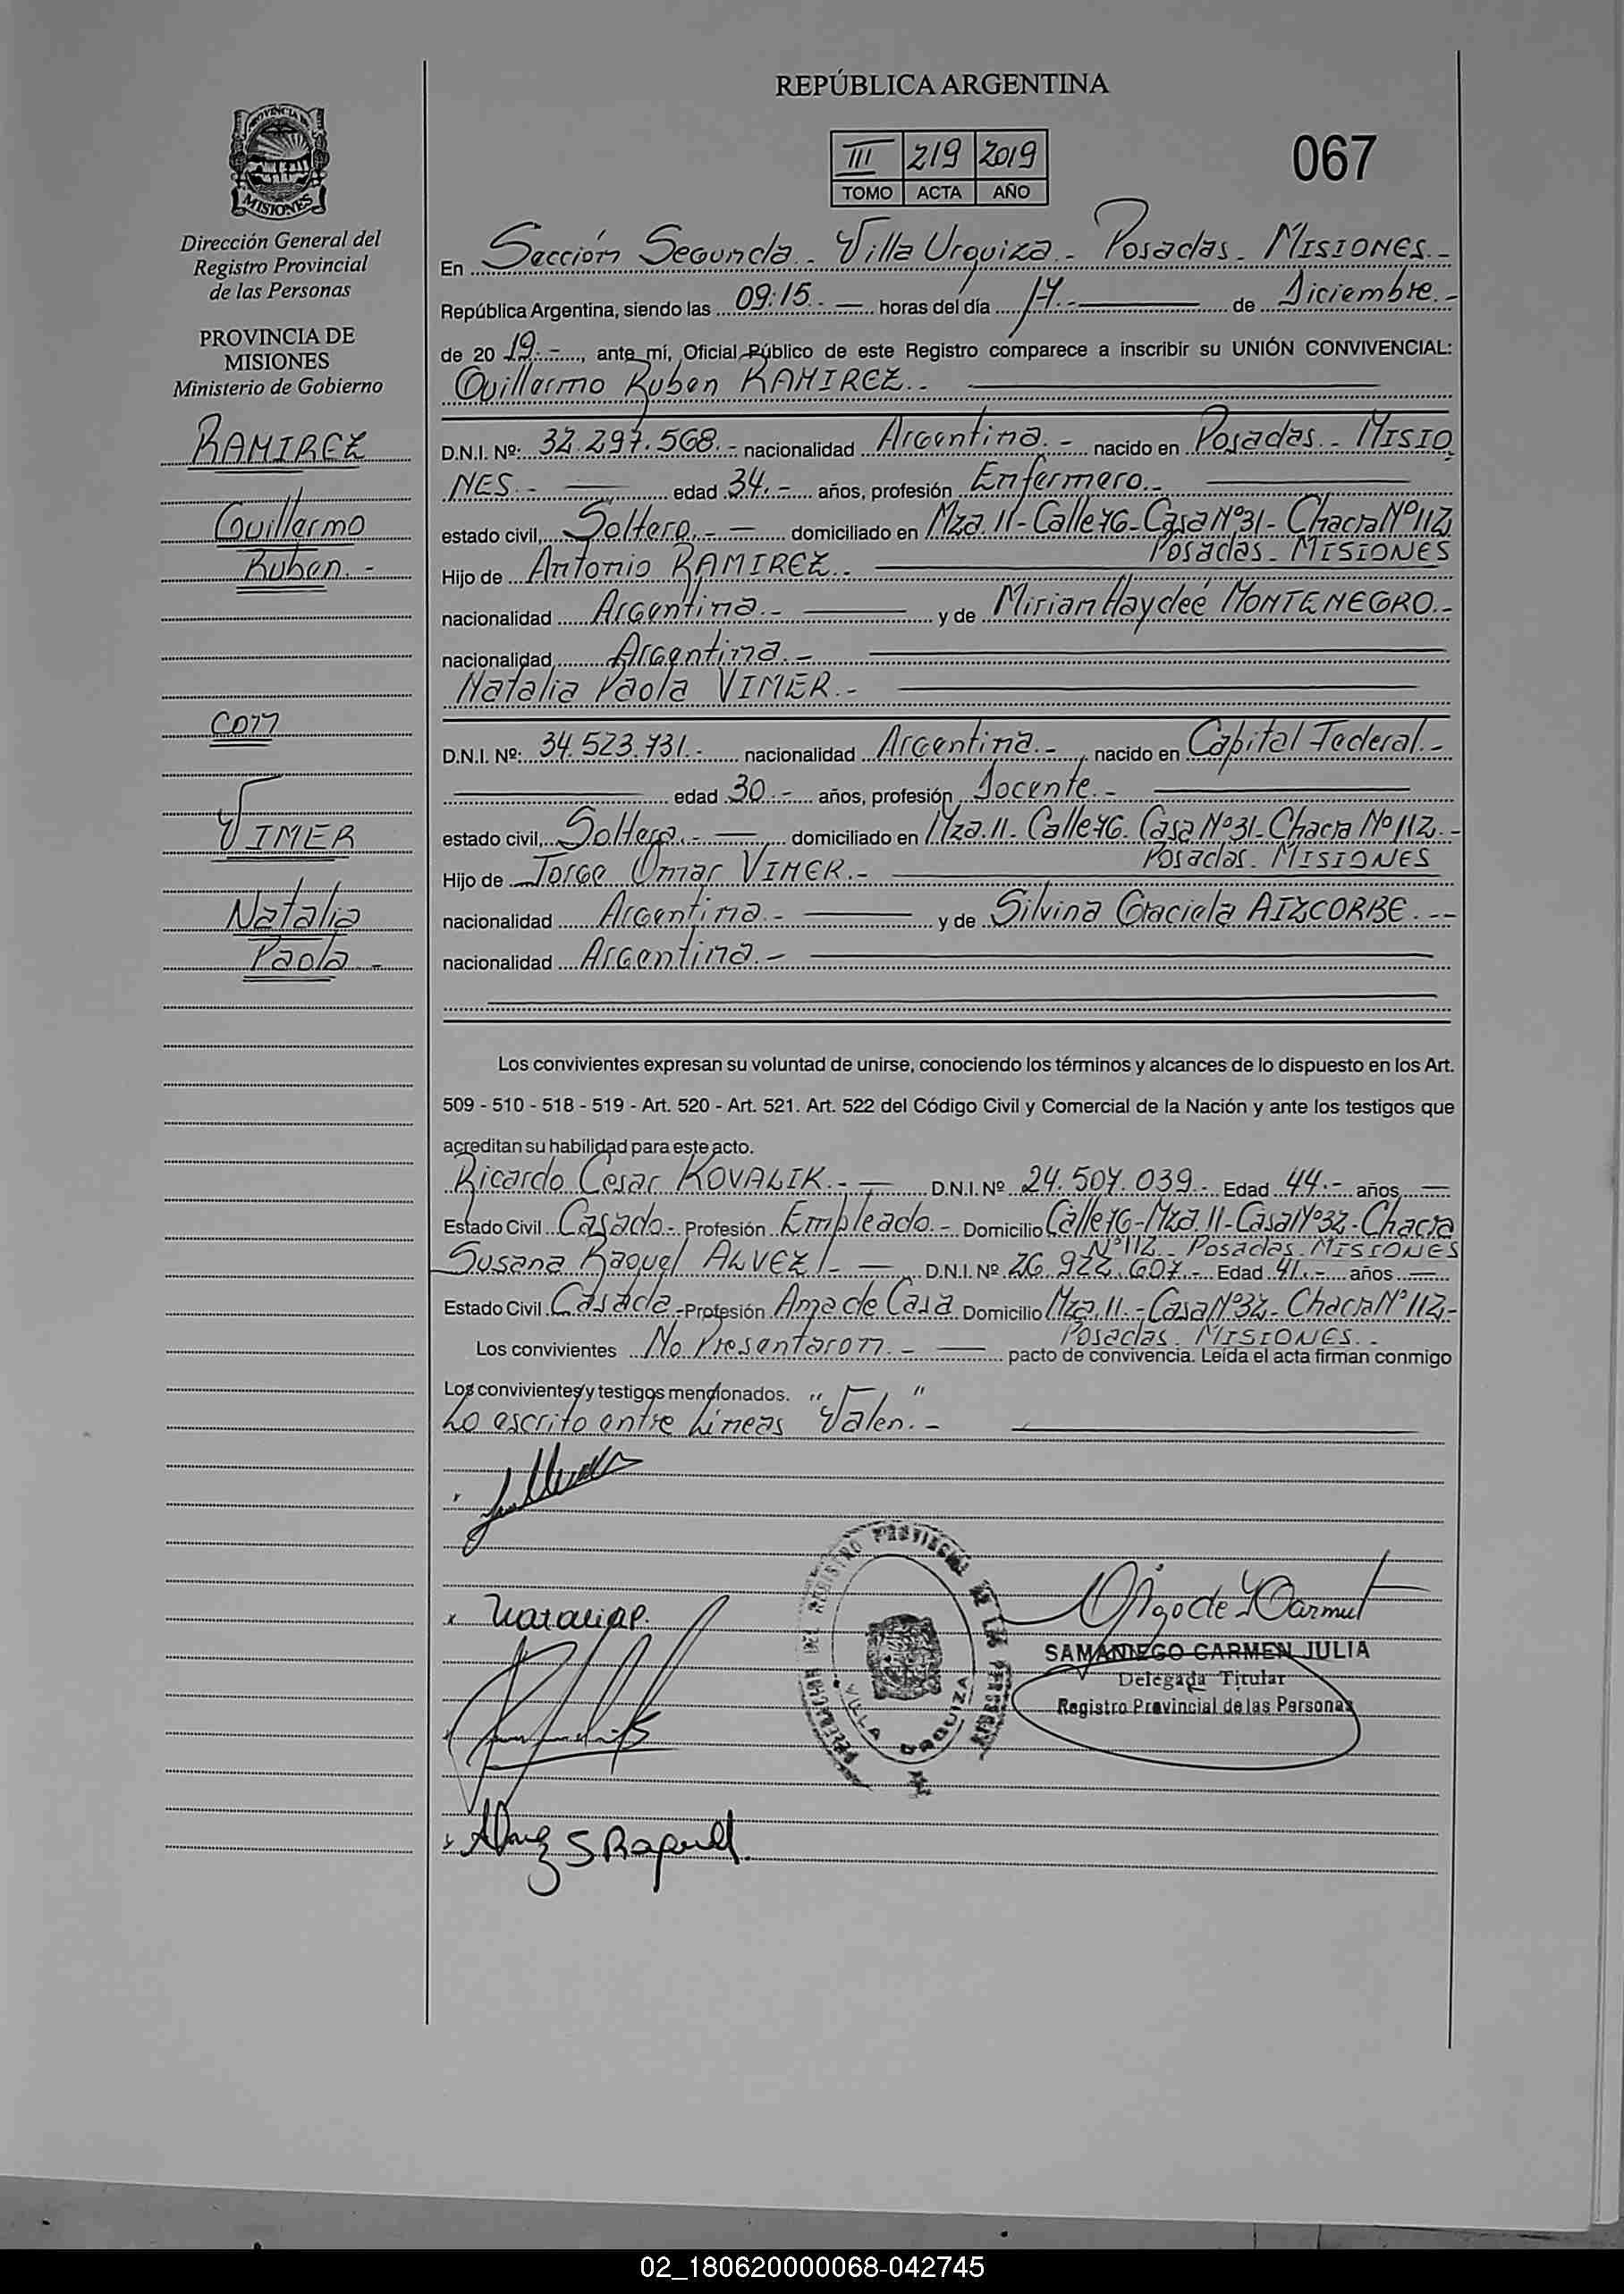 REPÚBLICA ARGENTINA
III 219 2019
TOMO ACTA AÑO
067
PROVINCIA DE
MISIONES
Dirección General del
Registro Provincial
de las Personas
PROVINCIA DE
MISIONES
Ministerio de Gobierno
RAMIREZ
Guillermo
Ruben.-
con
VIMER
Natalia
Paola.-
En Sección Segunda.- Villa Urquiza.- Posadas.- MISIONES.-
República Argentina, siendo las 09:15.- horas del día 17.- de Diciembre.-
de 20 19.-, ante mí, Oficial Público de este Registro comparece a inscribir su UNIÓN CONVIVENCIAL:
Guillermo Ruben RAMIREZ.-
D.N.I. Nº: 32.297.568.- nacionalidad Argentina.- nacido en Posadas.- MISIO
NES.- edad 34.- años, profesión Enfermero.-
estado civil, Soltero.- domiciliado en Mza.11-Calle 76-Casa Nº31-Chacra Nº112
Posadas-MISIONES
Hijo de Antonio RAMIREZ.-
nacionalidad Argentina.- y de Mirian Haydeé MONTENEGRO.-
nacionalidad Argentina.-
Natalia Paola VIMER.-
D.N.I. Nº: 34.523.731.- nacionalidad Argentina.- nacido en Capital Federal.-
edad 30.- años, profesión Docente.-
estado civil, Soltera.- domiciliado en Mza.11-Calle 76-Casa Nº31-Chacra Nº112.-
Posadas.MISIONES
Hijo de Jorge Omar VIMER.-
nacionalidad Argentina.- y de Silvina Graciela AIZCORBE.--
nacionalidad Argentina.-
Los convivientes expresan su voluntad de unirse, conociendo los términos y alcances de lo dispuesto en los Art.
509 - 510 - 518 - 519 - Art. 520 - Art. 521. Art. 522 del Código Civil y Comercial de la Nación y ante los testigos que
acreditan su habilidad para este acto.
Ricardo Cesar KOVALIK.- D.N.I. Nº 24.507.039.- Edad 44.- años
Estado Civil Casado.- Profesión Empleado.- Domicilio Calle 76-Mza.11-Casa Nº32-Chacra
Nº112.- Posadas.MISIONES
Susana Raquel ALVEZ.- D.N.I. Nº 26.922.607.- Edad 41.- años
Estado Civil Casada.- Profesión Ama de Casa Domicilio Mza.11.-Casa Nº32-Chacra Nº112-
Posadas.MISIONES.-
Los convivientes No Presentaron.- pacto de convivencia. Leída el acta firman conmigo
Los convivientes y testigos mencionados.
Lo escrito entre Líneas "Valen".-
Natalia P.
Alvez S Raquel
DELEGACION DEL REGISTRO PROVINCIAL DE LAS PERSONAS
VILLA URQUIZA
SAMANIEGO CARMEN JULIA
Delegada Titular
Registro Provincial de las Personas
02_180620000068-042745